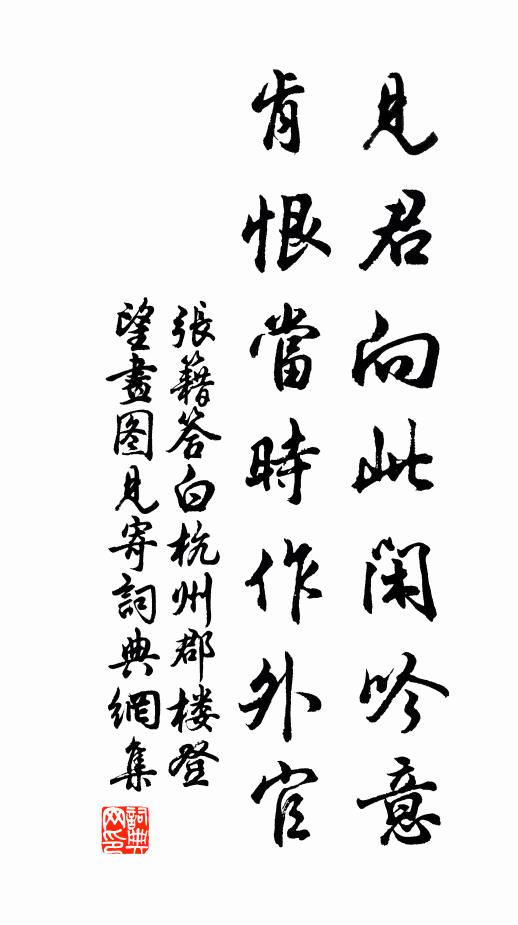 見君向此閑吟意
肯恨當時作外官
張籍答白杭州郡楼登
望畫图見寄詞典網集
詞典
网印